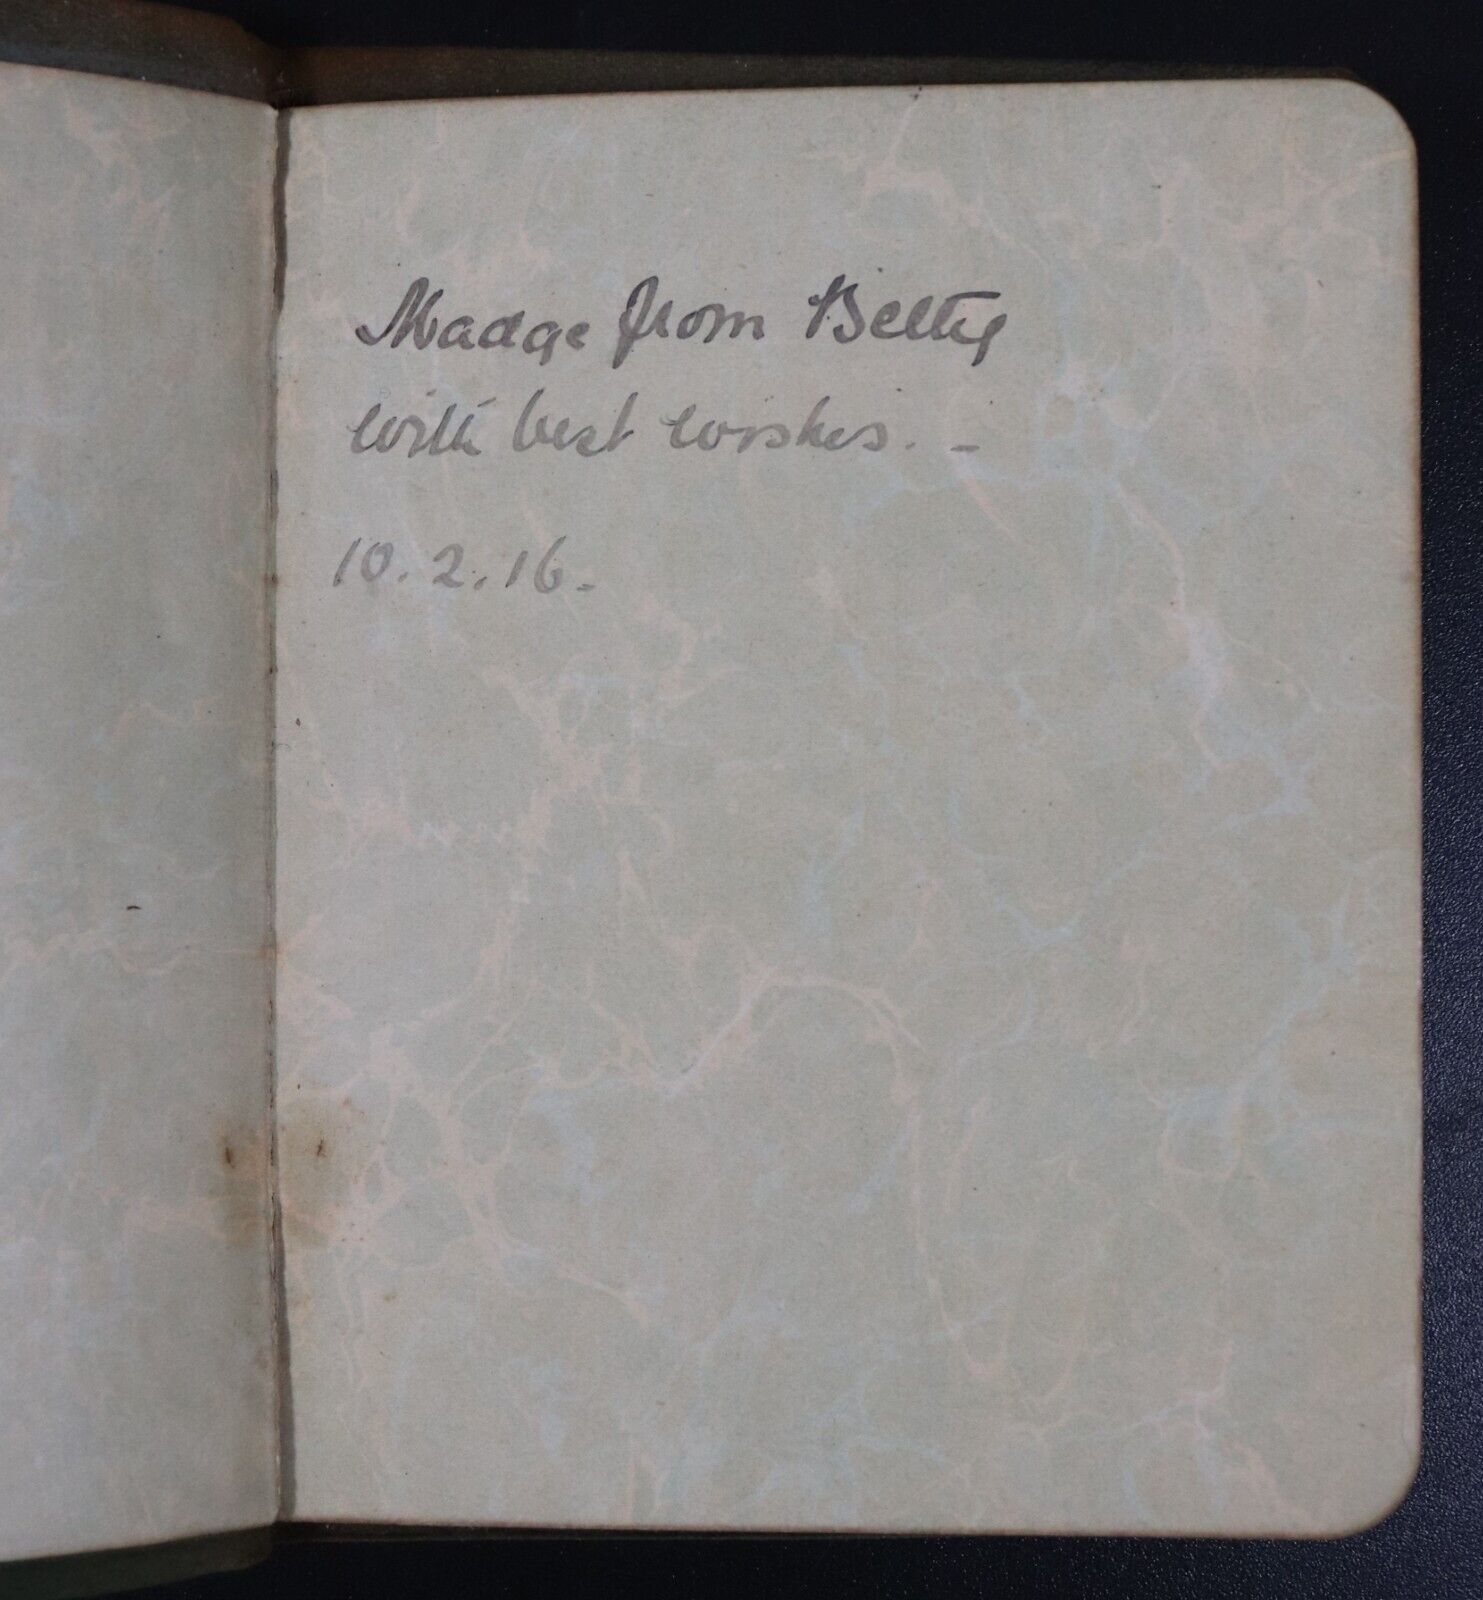 Madge from Betty
with best wishes. -
10.2.16.